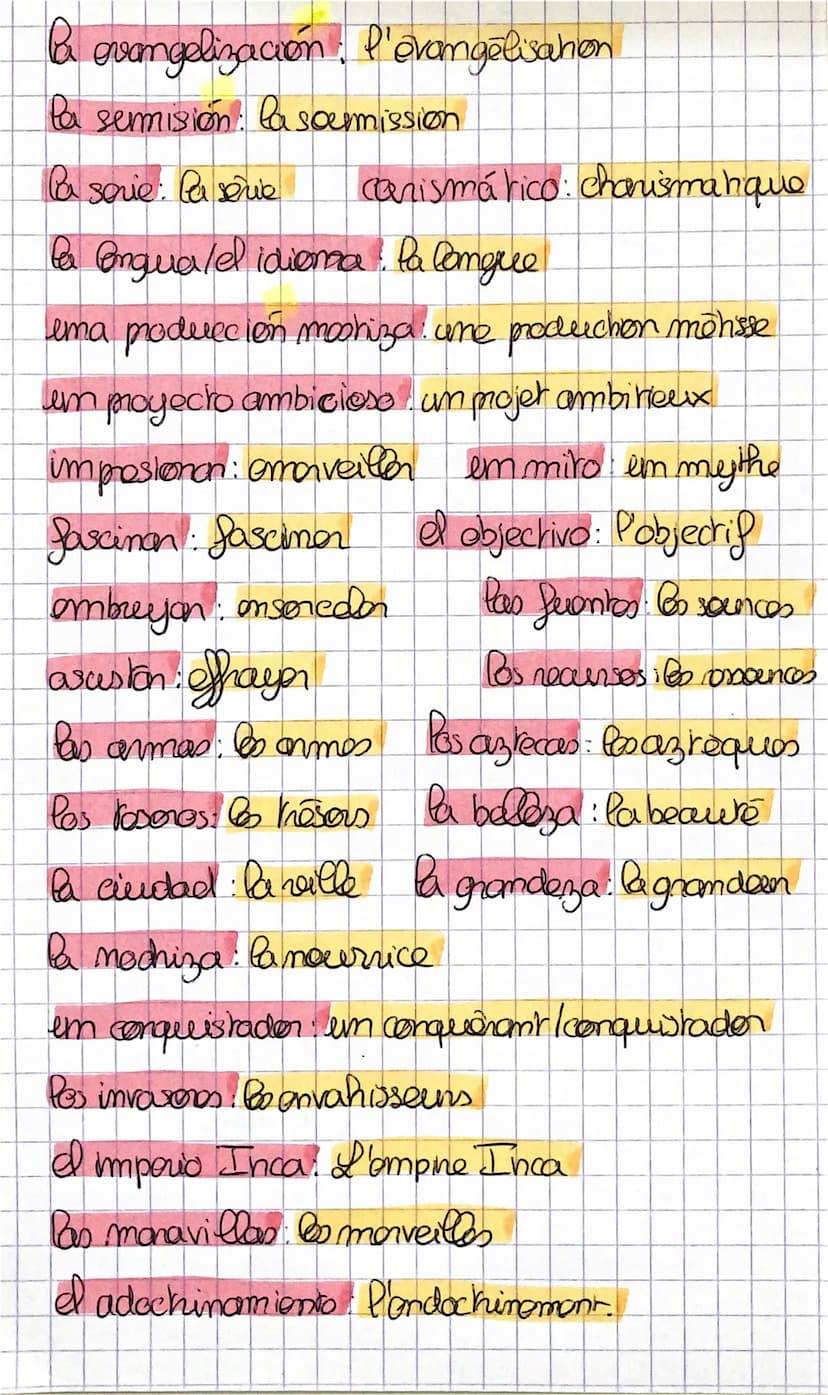 la evangelización : l'évangélisation
la sumisión : la soumission
la serie : la série carismático : charismatique
la lengua/el idioma : la langue
una producción mestiza : une production métisse
un proyecto ambicioso : un projet ambitieux
impresionar : émerveiller un mito : un mythe
fascinar : fasciner el objectivo : l'objectif
embrujar : ensorceler las fuentes : les sources
asustar : effrayer los recursos : les ressources
las armas : les armes los aztecas : les aztèques
los tesoros : les trésors la belleza : la beauté
la ciudad : la ville la grandeza : la grandeur
la nodriza : la nourrice
un conquistador : un conquérant/conquistador
los invasores : les envahisseurs
el imperio Inca : L'empire Inca
las maravillas : les merveilles
el adoctrinamiento : l'endoctrinement.